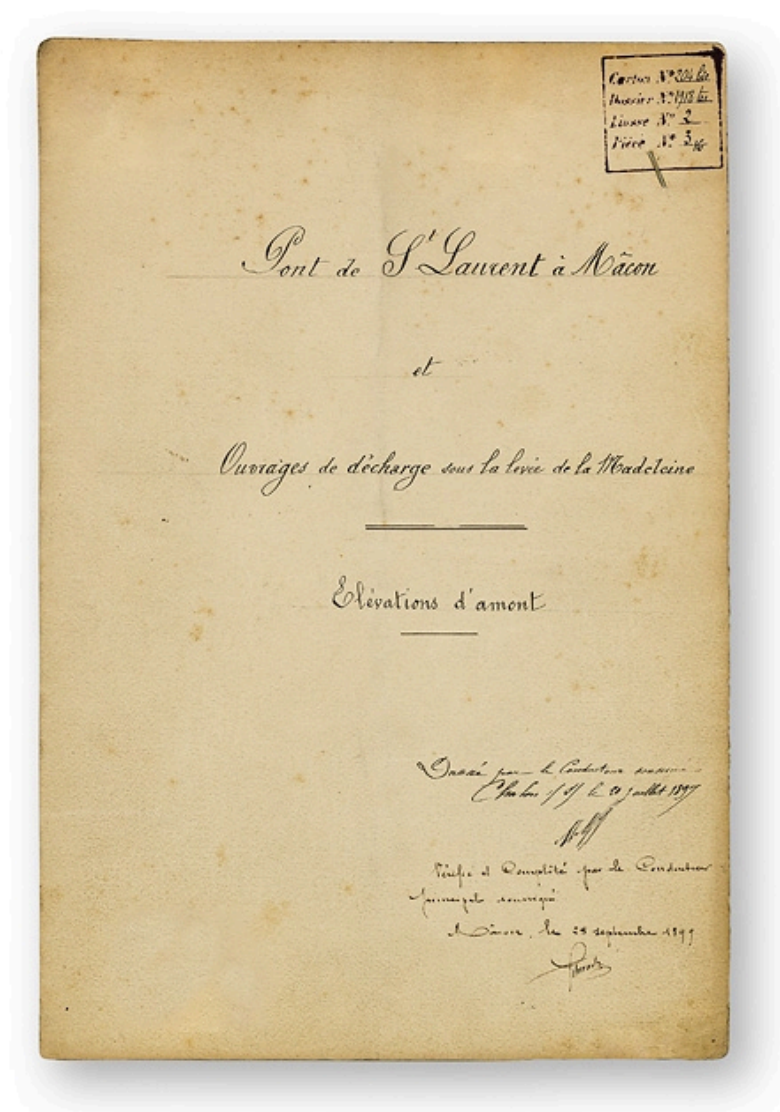 Carton Nº 204 bis
Dossier Nº 1918 bis
Liasse Nº 2
Pièce Nº 3
Pont de St Laurent à Mâcon
et
Ouvrages de décharge sous la levée de la Madeleine
Elévations d'amont
Dressé par le Conducteur soussigné
Chalon s/S le 21 juillet 1897
Vérifié et Complété par le Conducteur
principal soussigné
Mâcon, le 28 septembre 1899